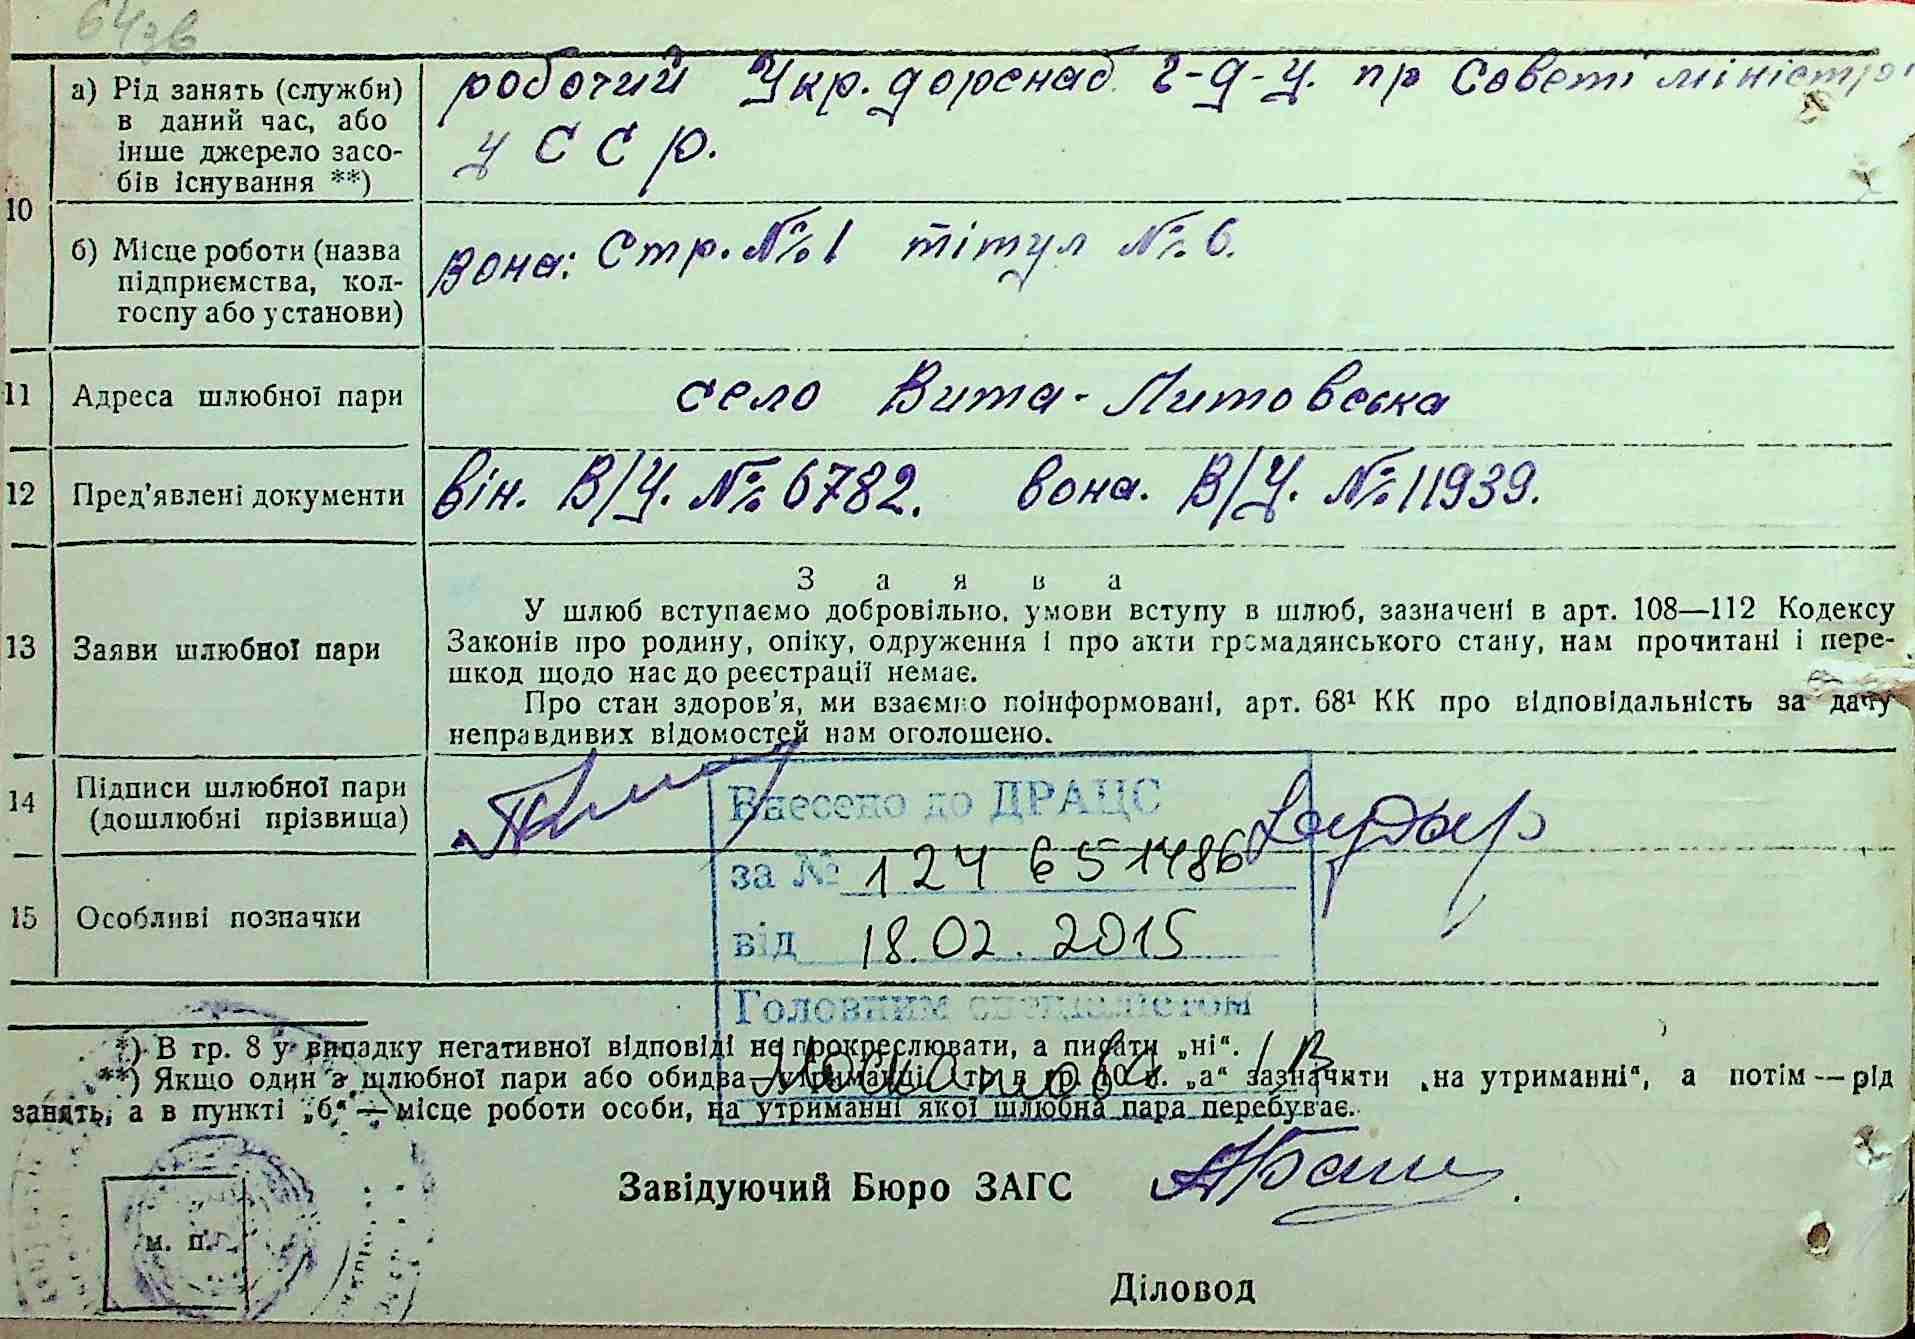 64зв
а) Рід занять (служби) в даний час, або інше джерело засо-бів існування **)
робочий Укр. дорснаб г-д-у. пр Советі міністр
у С С р.
10
б) Місце роботи (назва підприємства, кол-госпу або установи)
вона: Стр. № 1 тітул № 6.
11 Адреса шлюбної пари село Вита-Литовська
12 Пред'явлені документи він. В/У. № 6782. вона. В/У. № 11939.
З а я в а
У шлюб вступаємо добровільно, умови вступу в шлюб, зазначені в арт. 108—112 Кодексу
13 Заяви шлюбної пари
Законів про родину, опіку, одруження і про акти громадянського стану, нам прочитані і пере-
шкод щодо нас до реєстрації немає.
Про стан здоров'я, ми взаємно поінформовані, арт. 68¹ КК про відповідальність за дачу
неправдивих відомостей нам оголошено.
14 Підписи шлюбної пари
(дошлюбні прізвища)
Внесено до ДРАЦС
за № 124 651486
15 Особливі позначки
від 18.02.2015
Головним спеціалістом
*) В гр. 8 у випадку негативної відповіді не прокреслювати, а писати „ні“.
**) Якщо один з шлюбної пари або обидва утриманці, то в гр. 10 п. „а“ зазначити „на утриманні“, а потім — рід
занять, а в пункті „б“ — місце роботи особи, на утриманні якої шлюбна пара перебуває.
Завідуючий Бюро ЗАГС
м. п.
Діловод